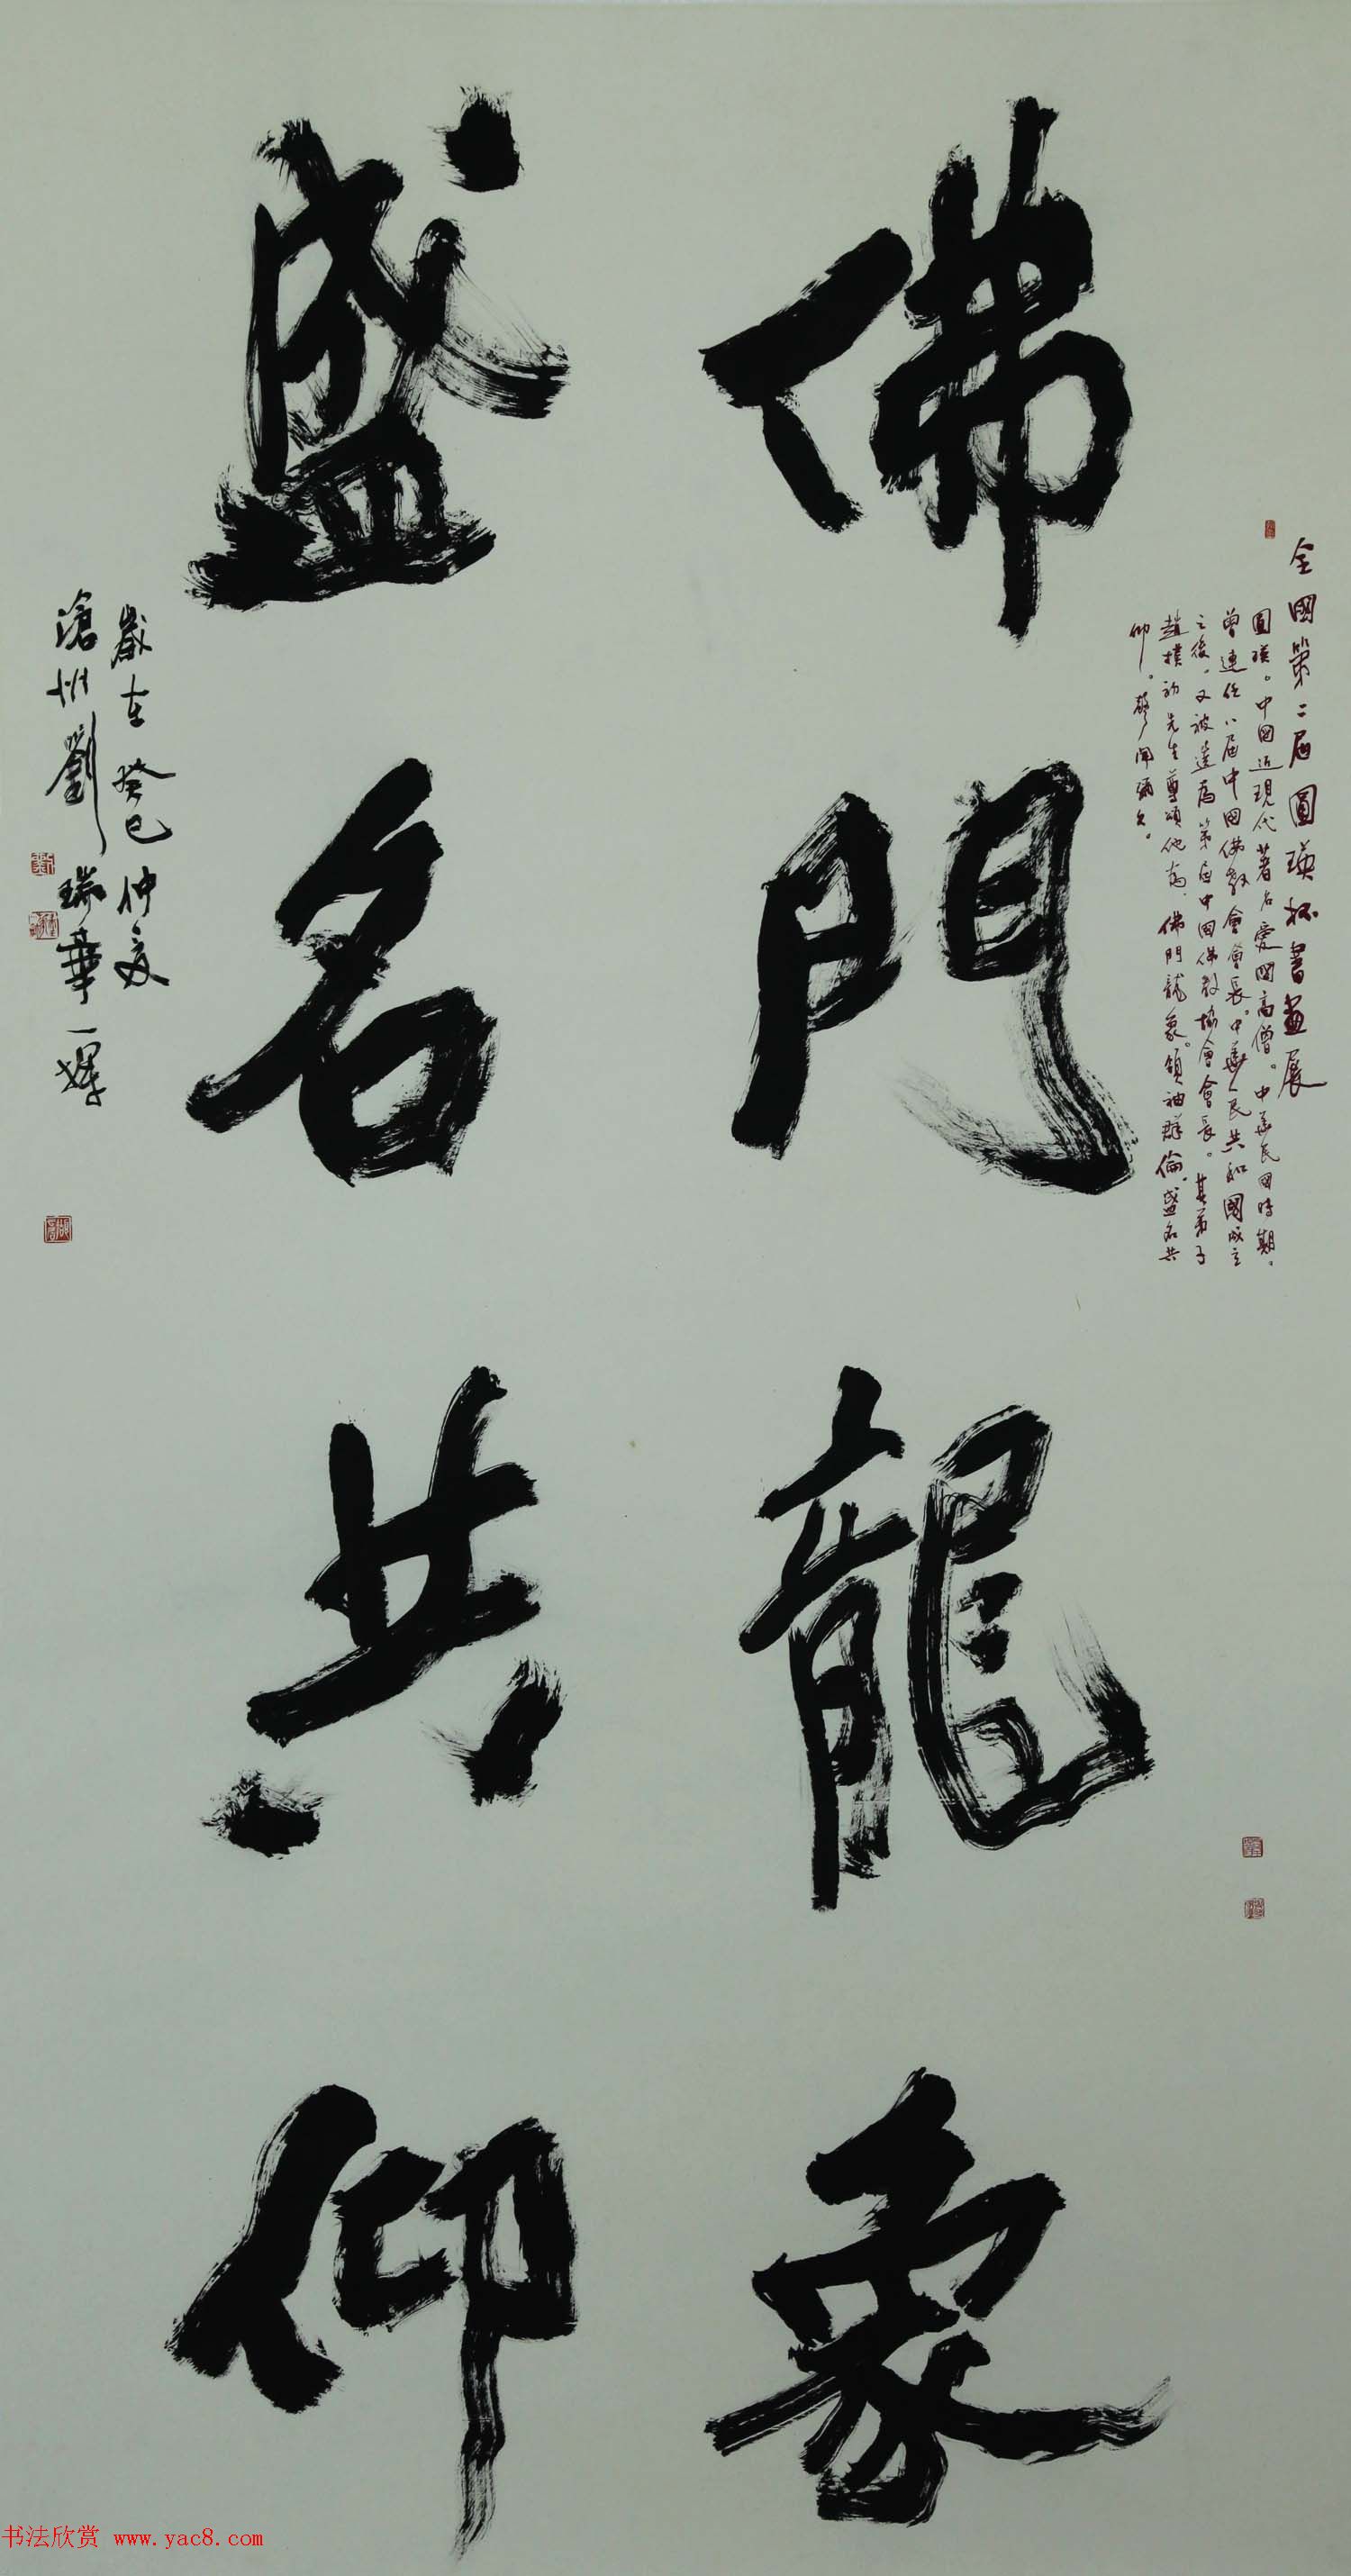 佛門龍象
盛名共仰
全國第二屆圓瑛杯書畫展
圓瑛。中國近現代著名愛國高僧。中華民國時期。
曾連任八屆中國佛教會會長。中華人民共和國成立
之後。又被選為第一屆中國佛教協會會長。其弟子
趙樸初先生尊頌他為佛門龍象。領袖群倫。盛名共
仰。聲聞彌久。
歲在癸巳仲夏
滄州劉瑞華一揮
书法欣赏 www.yac8.com